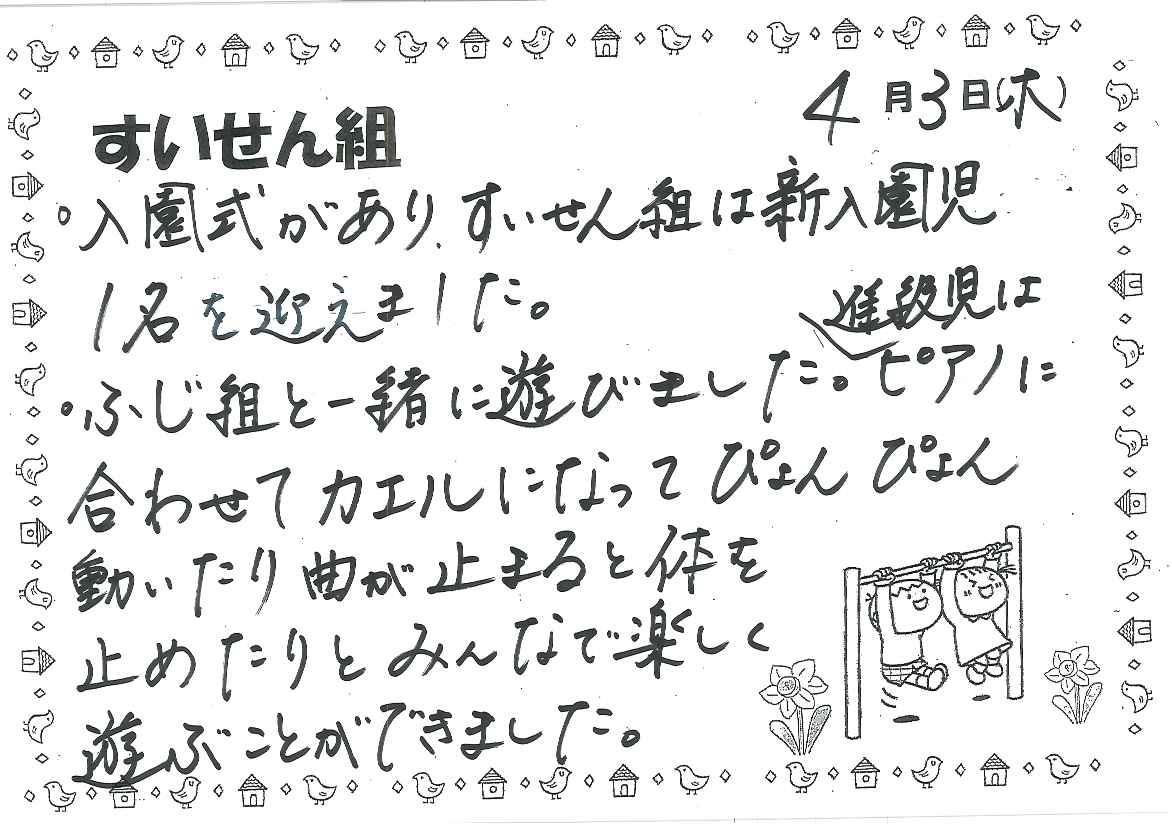 4月3日(木)
すいせん組
。入園式があり、すいせん組は新入園児
1名を迎えました。
進級児は
。ふじ組と一緒に遊びました。ピアノに
合わせてカエルになってぴょんぴょん
動いたり曲が止まると体を
止めたりとみんなで楽しく
遊ぶことができました。